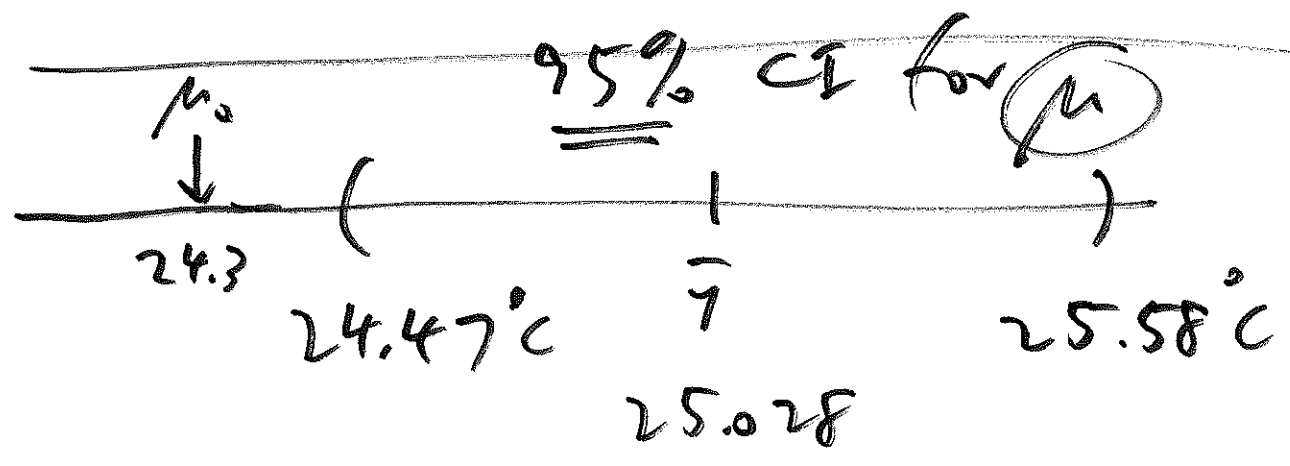 95% CI for μ
μ₀
24.3
24.47°C
ȳ
25.58°C
25.028